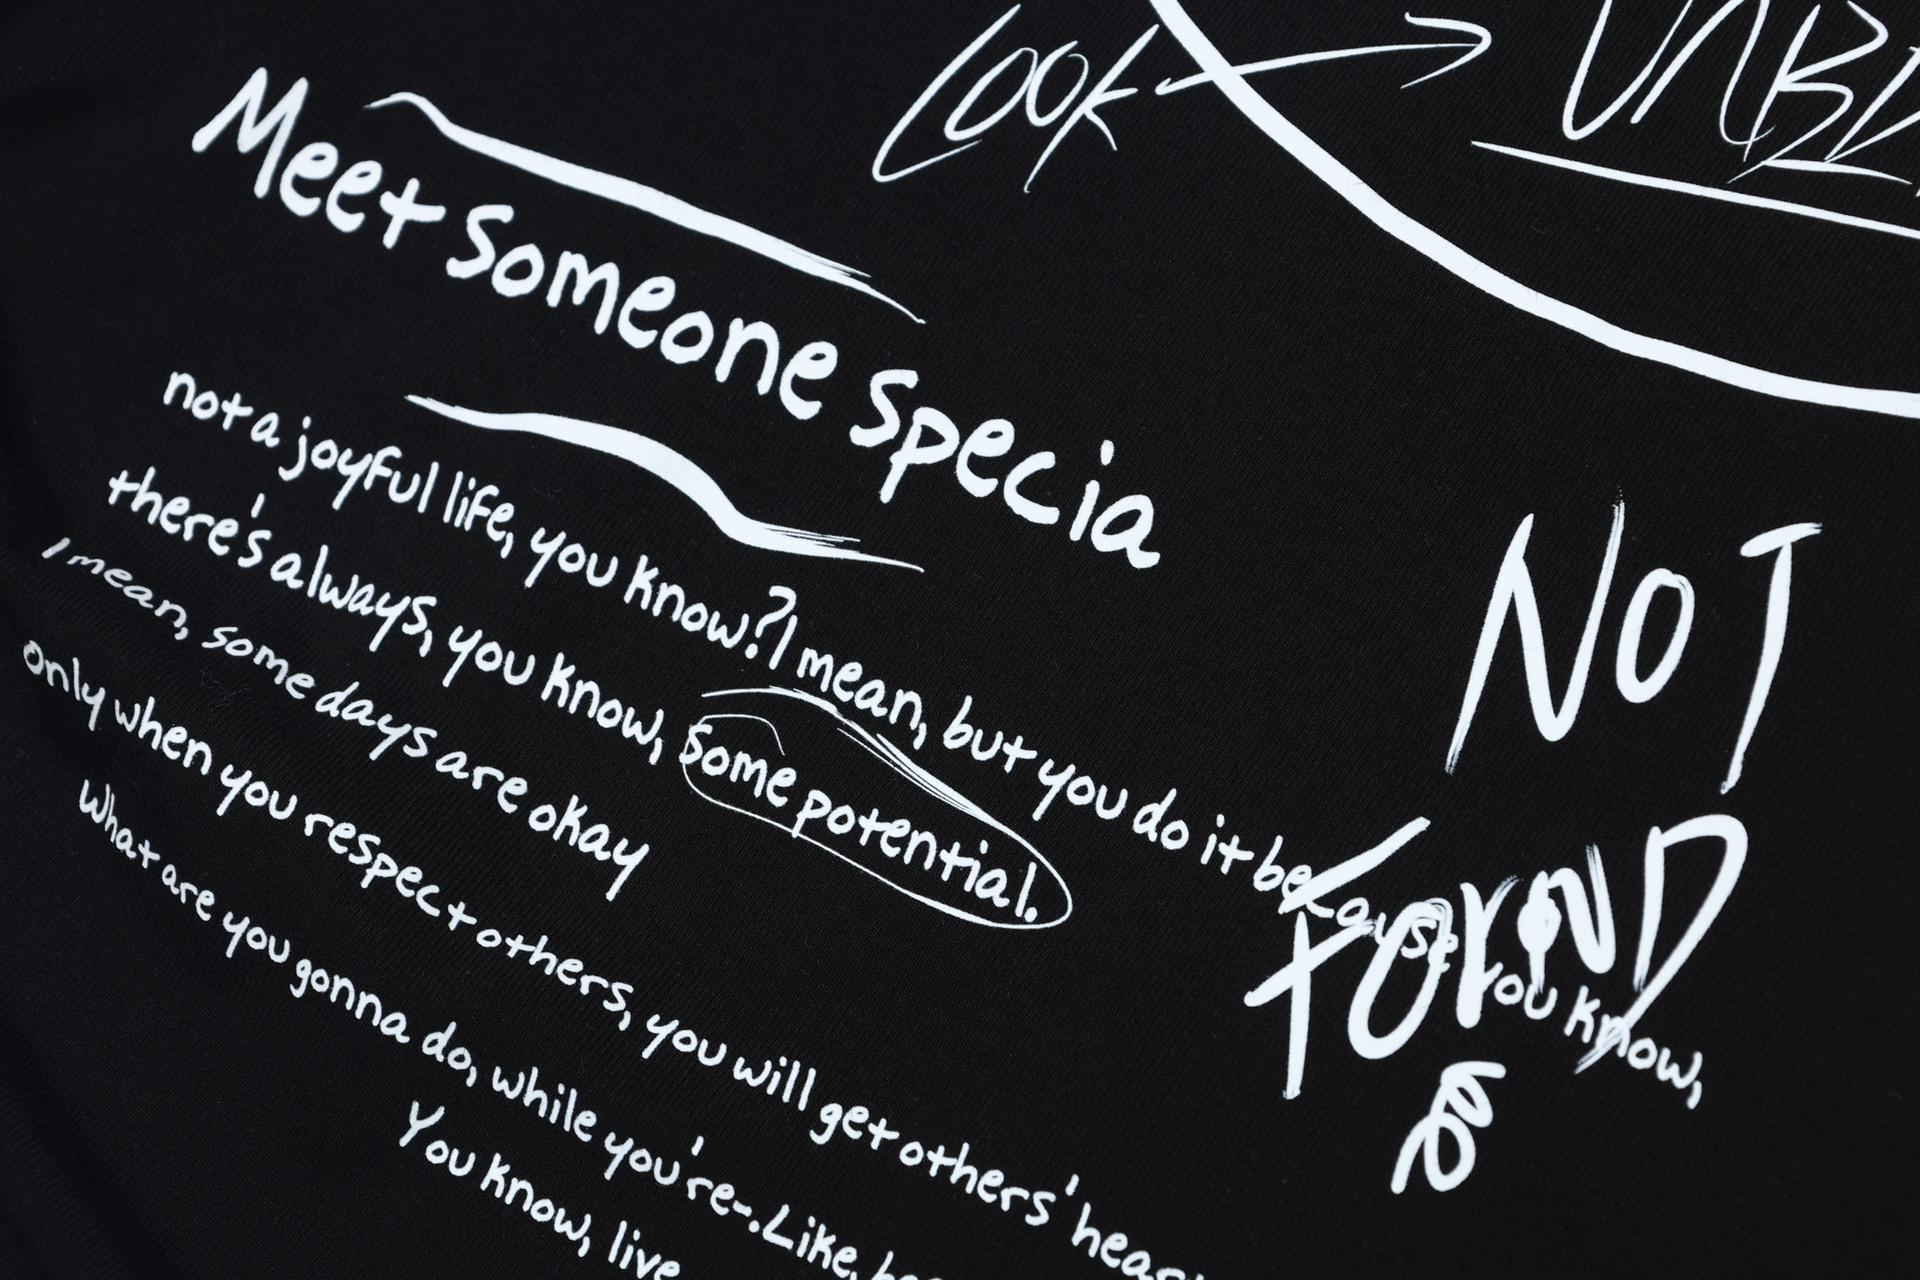 Look
Meet Someone Specia
not a joyful life, you know? I mean, but you do it because you know,
there's always, you know, some potential.
I mean, some days are okay
only when you respect others, you will get others'
What are you gonna do, while you're-. Like,
You know, live
NOT